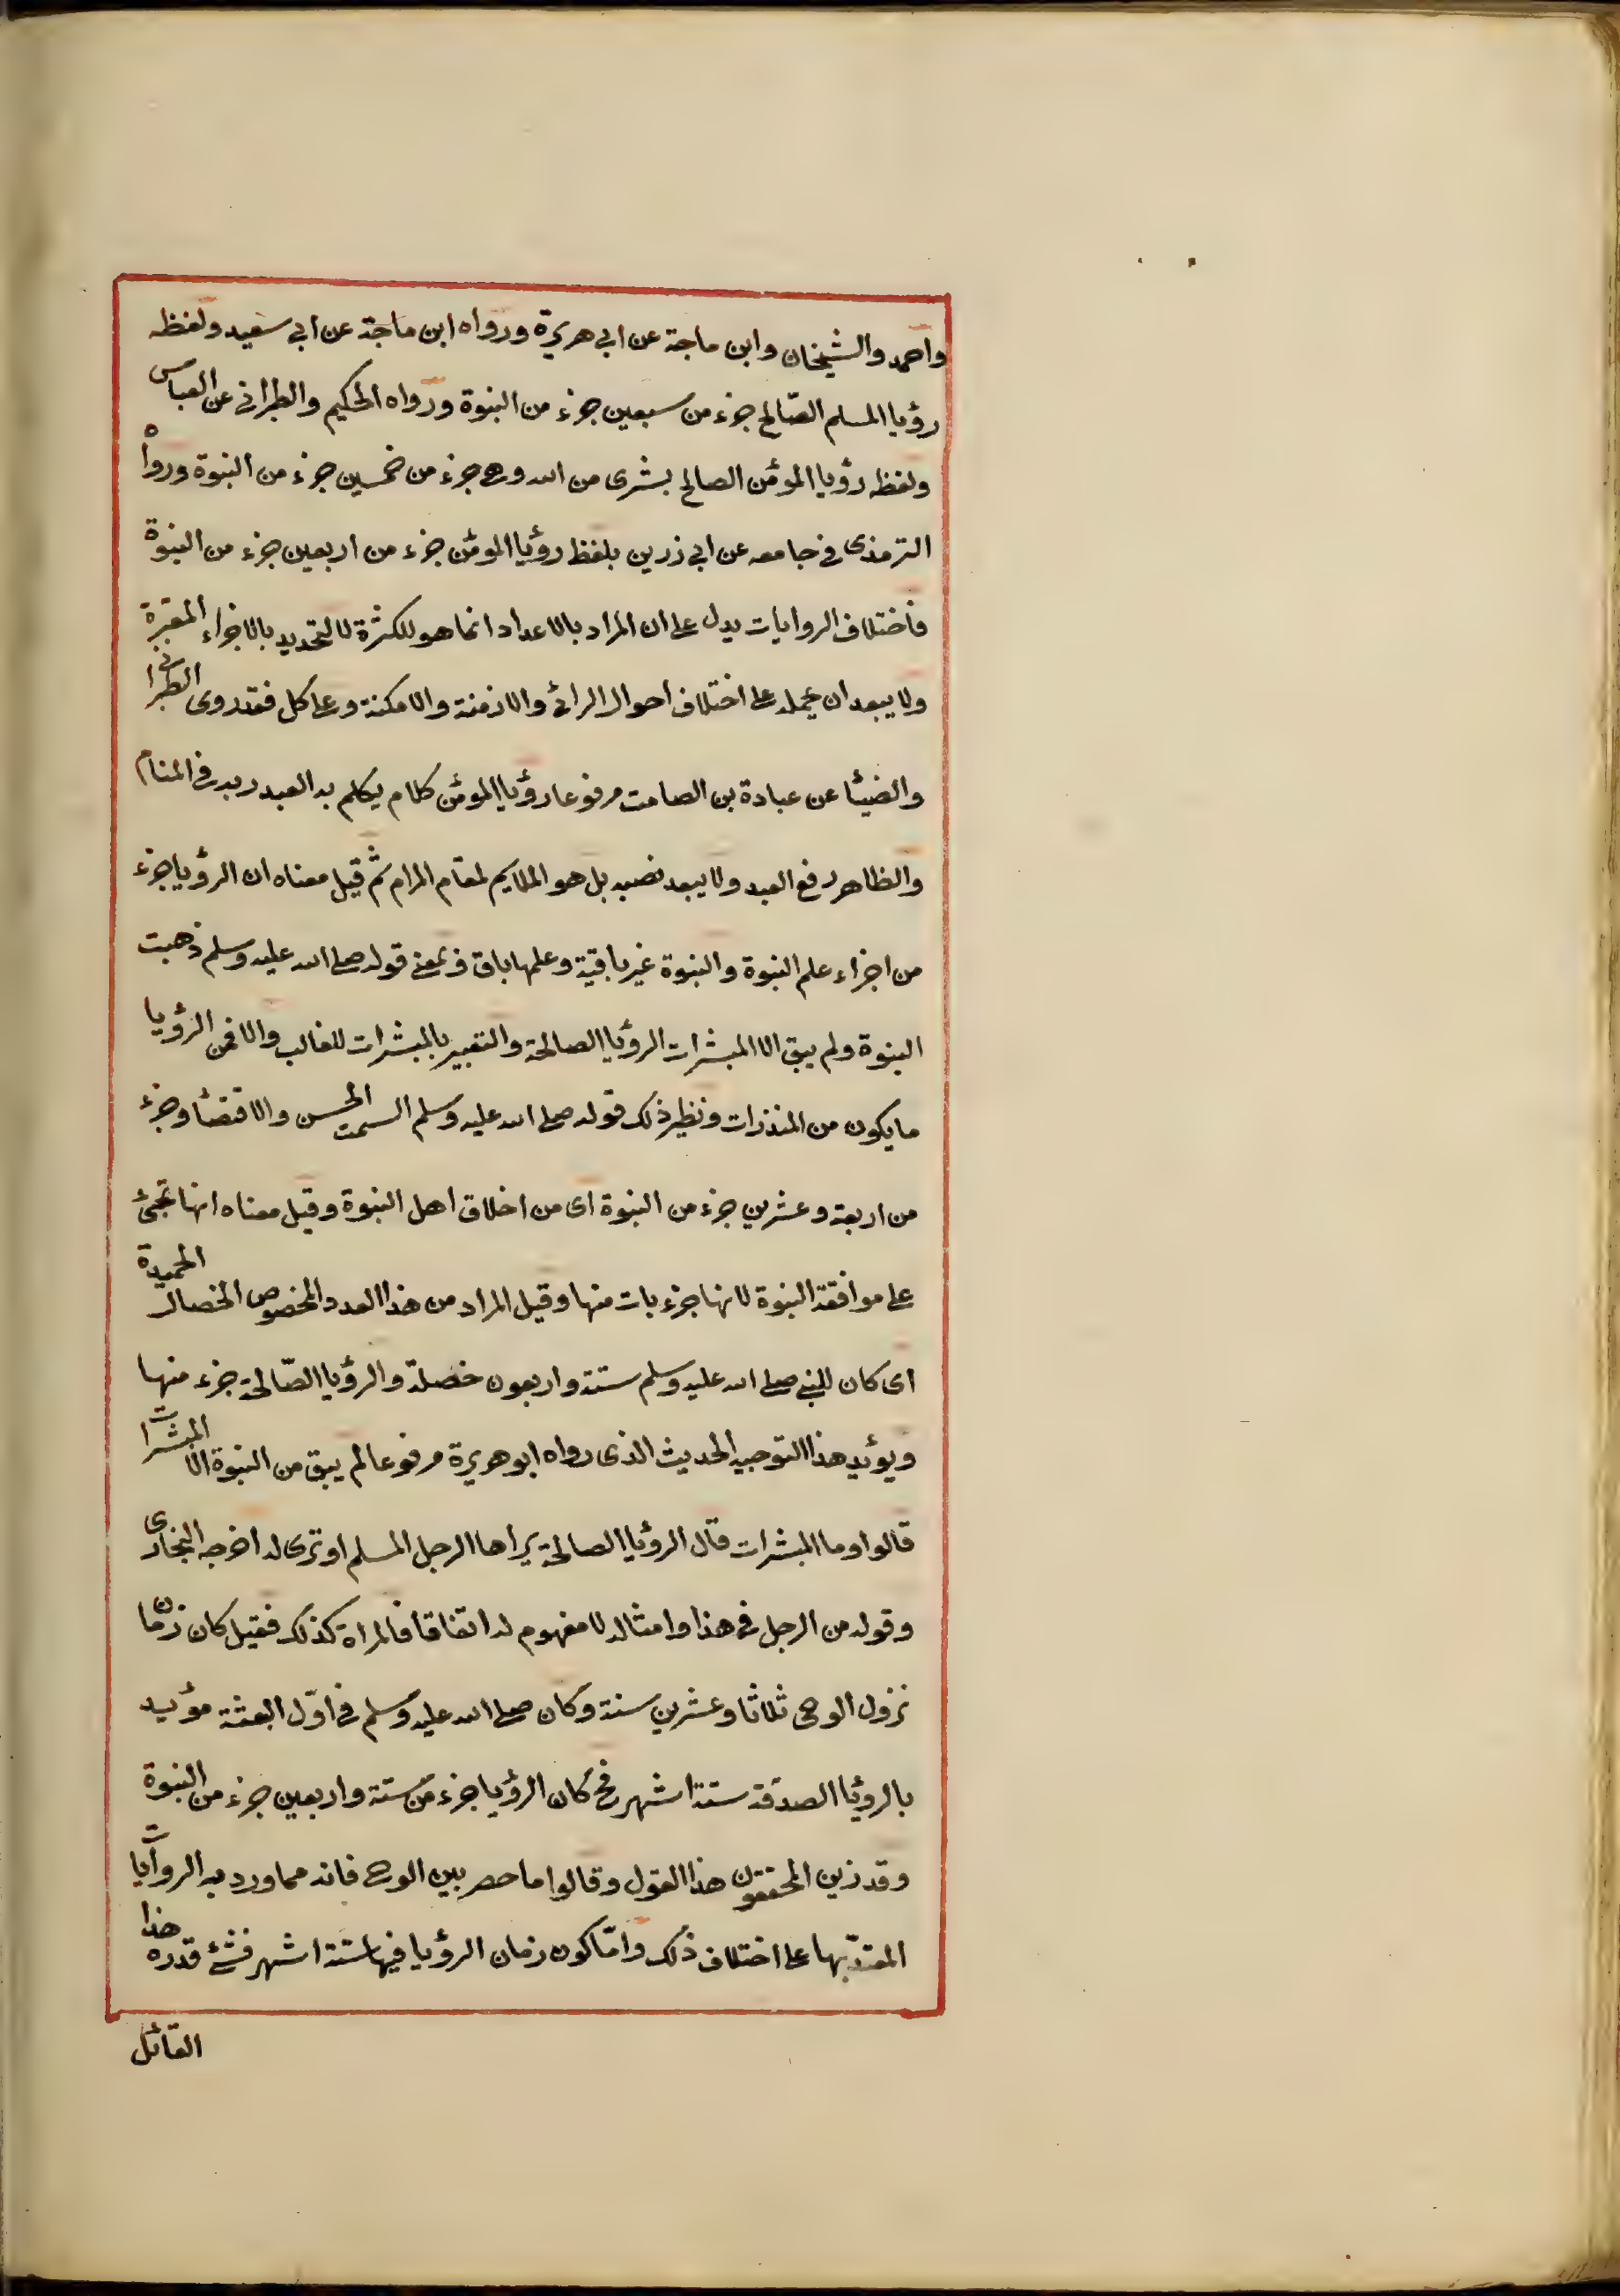 واحمد والشيخان وابن ماجة عن ابي هريرة ورواه ابن ماجة عن ابي سعيد ولفظه
رؤيا المسلم الصّالح جزء من سبعين جزء من النبوة ورواه الحكيم والطبراني عن العباس
ولفظه رؤيا المؤمن الصالح بشرى من الله وهي جزء من خمسين جزء من النبوة ورواه
الترمذى في جامعه عن ابي زرين بلفظ رؤيا المؤمن جزء من اربعين جزء من النبوة
فاختلاف الروايات يدل على ان المراد بالاعداد انما هو للكثرة لا للتحديد بالاجزاء المعتبرة
ولا يبعد ان يحمله على اختلاف احوال الرائي والازمنة والامكنة وعلى كل فقد روى الطبراني
والضيئا عن عبادة بن الصامت مرفوعا رؤيا المؤمن كلام يكلم به العبد ربه في المنام
والظاهر رفع العبد ولا يبعد نصبه بل هو الملايم لمقام المرام ثم قيل معناه ان الرؤيا جزء
من اجزاء علم النبوة والنبوة غير باقية وعلمها باق فى معنى قوله صلى الله عليه وسلم ذهبت
النبوة ولم يبق الا المبشرات الرؤيا الصالحة والتعبير بالمبشرات للغالب والا فمن الرؤيا
ما يكون من المنذرات ونظير ذلك قوله صلى الله عليه وسلم السمت الحسن والاقتضا وجزء
من اربعة وعشرين جزء من النبوة اى من اخلاق اهل النبوة وقيل معناه انها تجئ
على موافقة النبوة لانها جزء بات منها وقيل المراد من هذا العدد المخصوص الخصال الحميدة
اى كان للنبي صلى الله عليه وسلم ستة واربعون خصلة والرؤيا الصّالحة جزء منها
ويؤيد هذا التوجيه الحديث الذى رواه ابو هريرة مرفوعا لم يبق من النبوة الا المبشرات
قالوا وما المبشرات قال الرؤيا الصالحة يراها الرجل المسلم او ترى له اخرجه البخارى
وقوله من الرجل في هذا وامثاله لا مفهوم له اتفاقا فالمراة كذلك فقيل كان زمان
نزول الوحى ثلاثا وعشرين سنة وكان صلى الله عليه وسلم في اوّل البعثة مؤيد
بالرؤيا الصدقة ستة اشهر فح كان الرؤيا جزء من ستة واربعين جزء من النبوة
وقد زين المحققون هذا القول وقالوا ما حصر بين الوحى فانه مما ورد به الروايات
المعتدّ بها على اختلاف ذلك وامّا كون زمان الرؤيا فيها ستة اشهر فشئ قدره هذا
القائل